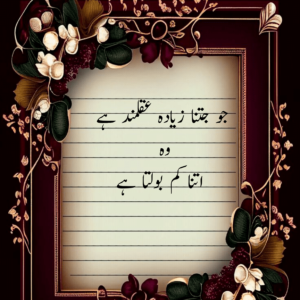 جو جتنا زیادہ عقلمند ہے
وہ
اتنا کم بولتا ہے